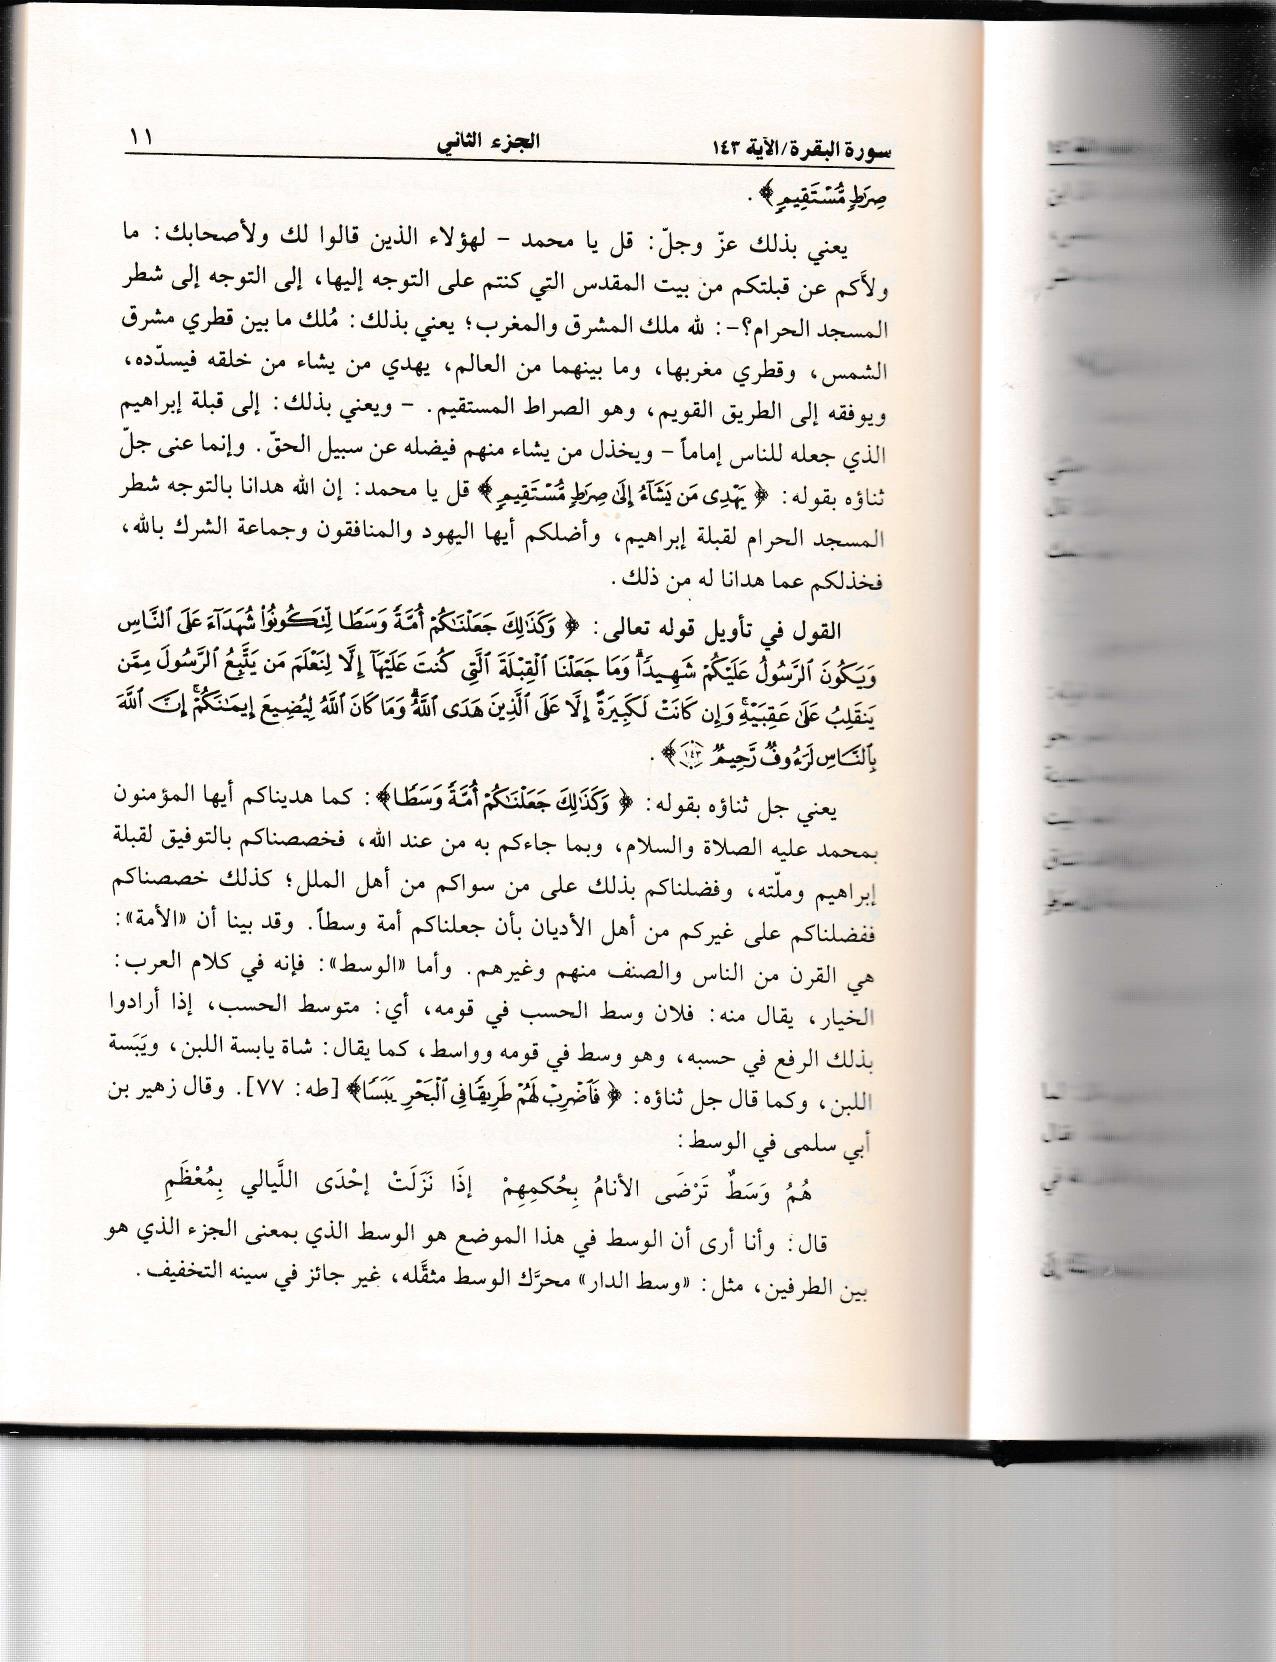 سورة البقرة/الآية ١٤٣ الجزء الثاني ١١
صِرَاطٍ مُّسْتَقِيمٍ﴾.
يعني بذلك عزّ وجلّ: قل يا محمد – لهؤلاء الذين قالوا لك ولأصحابك: ما
ولاَّكم عن قبلتكم من بيت المقدس التي كنتم على التوجه إليها، إلى التوجه إلى شطر
المسجد الحرام؟-: لله ملك المشرق والمغرب؛ يعني بذلك: مُلك ما بين قطري مشرق
الشمس، وقطري مغربها، وما بينهما من العالم، يهدي من يشاء من خلقه فيسدّده،
ويوفقه إلى الطريق القويم، وهو الصراط المستقيم. – ويعني بذلك: إلى قبلة إبراهيم
الذي جعله للناس إماماً – ويخذل من يشاء منهم فيضله عن سبيل الحقّ. وإنما عنى جلّ
ثناؤه بقوله: ﴿يَهْدِى مَن يَشَآءُ إِلَىٰ صِرَٰطٍ مُّسْتَقِيمٍ﴾ قل يا محمد: إن الله هدانا بالتوجه شطر
المسجد الحرام لقبلة إبراهيم، وأضلكم أيها اليهود والمنافقون وجماعة الشرك بالله،
فخذلكم عما هدانا له من ذلك.
القول في تأويل قوله تعالى: ﴿وَكَذَٰلِكَ جَعَلْنَٰكُمْ أُمَّةً وَسَطًا لِّتَكُونُوا۟ شُهَدَآءَ عَلَى ٱلنَّاسِ
وَيَكُونَ ٱلرَّسُولُ عَلَيْكُمْ شَهِيدًا ۗ وَمَا جَعَلْنَا ٱلْقِبْلَةَ ٱلَّتِى كُنتَ عَلَيْهَآ إِلَّا لِنَعْلَمَ مَن يَتَّبِعُ ٱلرَّسُولَ مِمَّن
يَنقَلِبُ عَلَىٰ عَقِبَيْهِ ۚ وَإِن كَانَتْ لَكَبِيرَةً إِلَّا عَلَى ٱلَّذِينَ هَدَى ٱللَّهُ ۗ وَمَا كَانَ ٱللَّهُ لِيُضِيعَ إِيمَٰنَكُمْ ۚ إِنَّ ٱللَّهَ
بِٱلنَّاسِ لَرَءُوفٌ رَّحِيمٌ ١٤٣﴾.
يعني جل ثناؤه بقوله: ﴿وَكَذَٰلِكَ جَعَلْنَٰكُمْ أُمَّةً وَسَطًا﴾: كما هديناكم أيها المؤمنون
بمحمد عليه الصلاة والسلام، وبما جاءكم به من عند الله، فخصصناكم بالتوفيق لقبلة
إبراهيم وملّته، وفضلناكم بذلك على من سواكم من أهل الملل؛ كذلك خصصناكم
ففضلناكم على غيركم من أهل الأديان بأن جعلناكم أمة وسطاً. وقد بينا أن «الأمة»:
هي القرن من الناس والصنف منهم وغيرهم. وأما «الوسط»: فإنه في كلام العرب:
الخيار، يقال منه: فلان وسط الحسب في قومه، أي: متوسط الحسب، إذا أرادوا
بذلك الرفع في حسبه، وهو وسط في قومه وواسط، كما يقال: شاة يابسة اللبن، ويَبَسة
اللبن، وكما قال جل ثناؤه: ﴿فَٱضْرِبْ لَهُمْ طَرِيقًا فِى ٱلْبَحْرِ يَبَسًا﴾ [طه: ٧٧]. وقال زهير بن
أبي سلمى في الوسط:
هُمُ وَسَطٌ تَرْضَى الأنامُ بِحُكمِهِمْ إذَا نَزَلَتْ إحْدَى اللَّيالي بِمُعْظَمِ
قال: وأنا أرى أن الوسط في هذا الموضع هو الوسط الذي بمعنى الجزء الذي هو
بين الطرفين، مثل: «وسط الدار» محرَّك الوسط مثقَّله، غير جائز في سينه التخفيف.